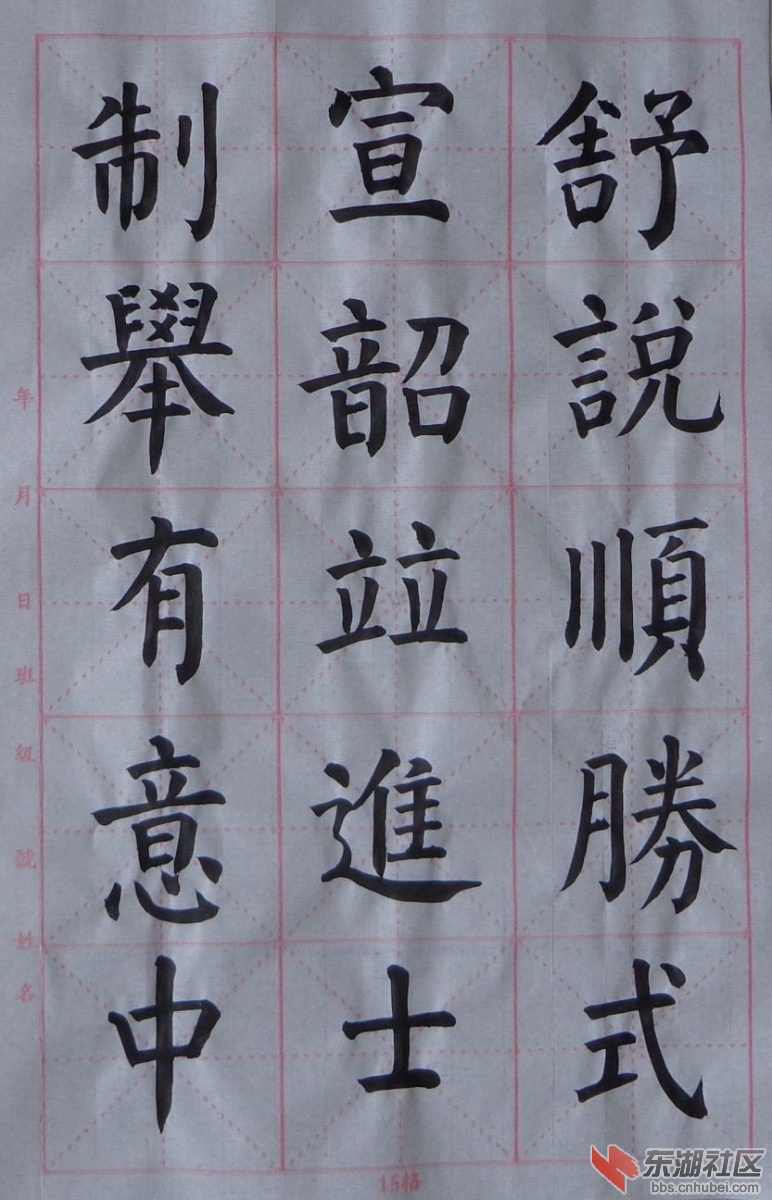 舒說順勝式
宣韶竝進士
制舉有意中
年月日班組號姓名
15格
东湖社区
bbs.cnhubei.com